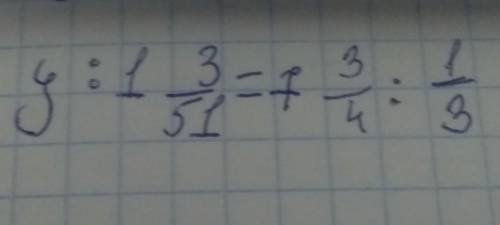 y : 1 3/51 = 7 3/4 : 1/3